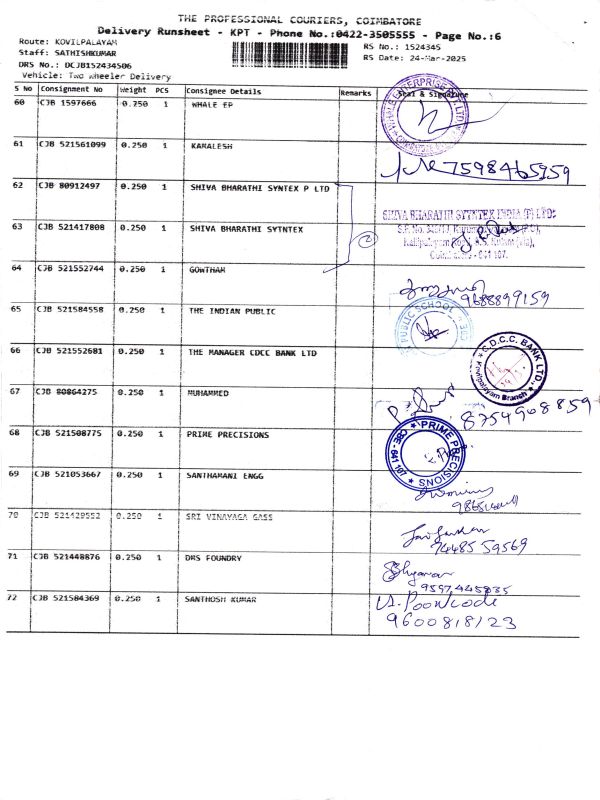 THE PROFESSIONAL COURIERS, COIMBATORE
Delivery Runsheet - KPT - Phone No.:0422-3505555 - Page No.:6
Route: KOVILPALAYAM
RS No.: 1524345
Staff: SATHISHKUMAR
RS Date: 24-Mar-2025
DRS No.: DCJB152434506
Vehicle: Two Wheeler Delivery
S No Consignment No Weight PCS Consignee Details Remarks Seal & Signature
60 CJB 1597666 0.250 1 WHALE EP
61 CJB 521561099 0.250 1 KAMALESH
7598465959
62 CJB 80912497 0.250 1 SHIVA BHARATHI SYNTEX P LTD
SHIVA BHARATHI SYTNTEX INDIA (P) LTD:
63 CJB 521417808 0.250 1 SHIVA BHARATHI SYTNTEX
2
641 107.
64 CJB 521552744 0.250 1 GOWTHAM
9688899159
65 CJB 521584558 0.250 1 THE INDIAN PUBLIC
PUBLIC SCHOOL
66 CJB 521552681 0.250 1 THE MANAGER CDCC BANK LTD
C.D.C.C. BANK LTD.,
Kovilpalayam Branch
67 CJB 80864275 0.250 1 MUHAMMED
8754908859
68 CJB 521508775 0.250 1 PRIME PRECISIONS
PRIME PRECISIONS
CBE - 641 107
69 CJB 521053667 0.250 1 SANTHAMANI ENGG
70 CJB 521429552 0.250 1 SRI VINAYAGA GASS
9448559569
71 CJB 521448876 0.250 1 DMS FOUNDRY
72 CJB 521584369 0.250 1 SANTHOSH KUMAR
9600818123